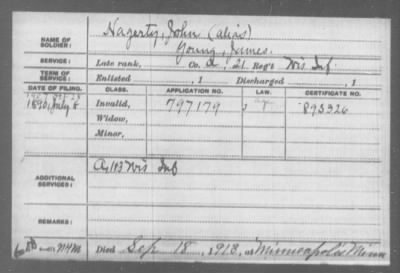 NAME OF SOLDIER: Hagerty, John (alias)
Young, James.
SERVICE: Late rank, Co. A, 21. Reg't Wis Inf.
TERM OF SERVICE: Enlisted , 1 Discharged , 1
DATE OF FILING. CLASS. APPLICATION NO. LAW. CERTIFICATE NO.
1890, July 8 Invalid, 797179 893326
Widow,
Minor,
ADDITIONAL SERVICES: A, 143 Wis Inf
REMARKS:
Died Sep 18, 1918, at Minneapolis Minn